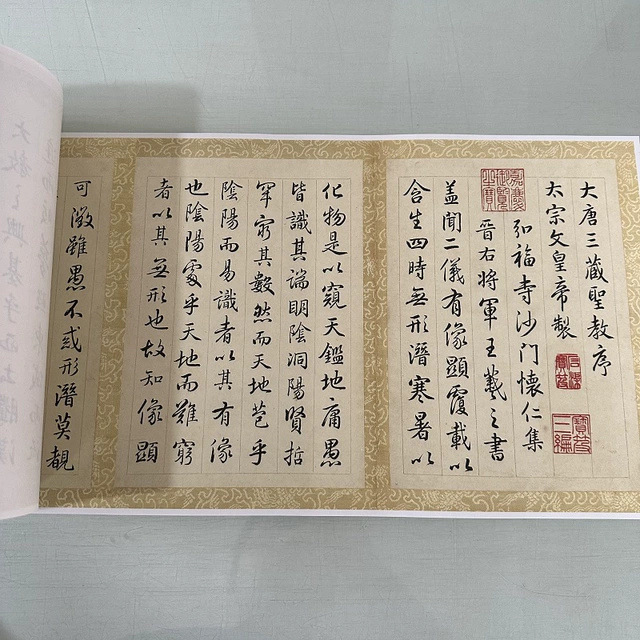 大唐三藏聖教序
太宗文皇帝製
石渠寶笈
寶笈三編
弘福寺沙門懷仁集
嘉慶御覽之寶
晉右將軍王羲之書
盖聞二儀有像顯覆載以
含生四時無形潛寒暑以
化物是以窺天鑑地庸愚
皆識其端明陰洞陽賢哲
罕窮其數然而天地苞乎
陰陽而易識者以其有像
也陰陽處乎天地而難窮
者以其無形也故知像顯
可徵雖愚不惑形潛莫覩